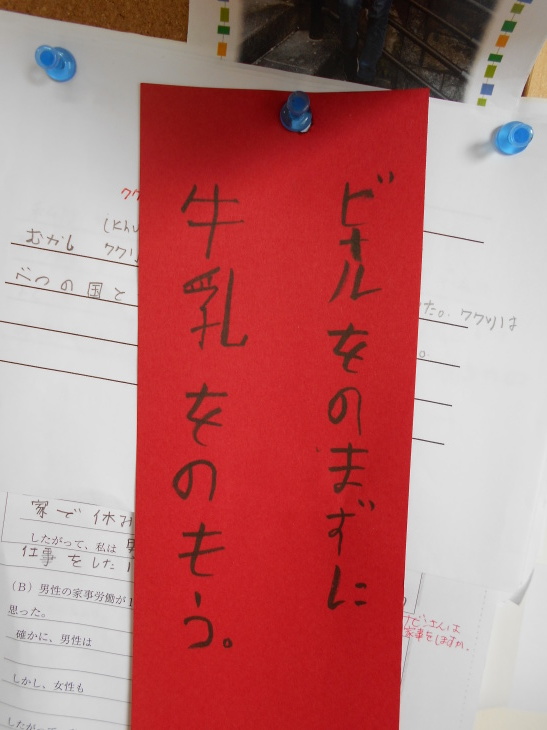 ビールをのまずに
牛乳をのもう。
むかし ククリ
べつの国と
(Khu
クク
た。ククリは
。
家で休み
したがって、私は
仕事をした
(B) 男性の家事労働が1
思った。
確かに、男性は
しかし、女性も
したがって
さんは
家事をしますか。